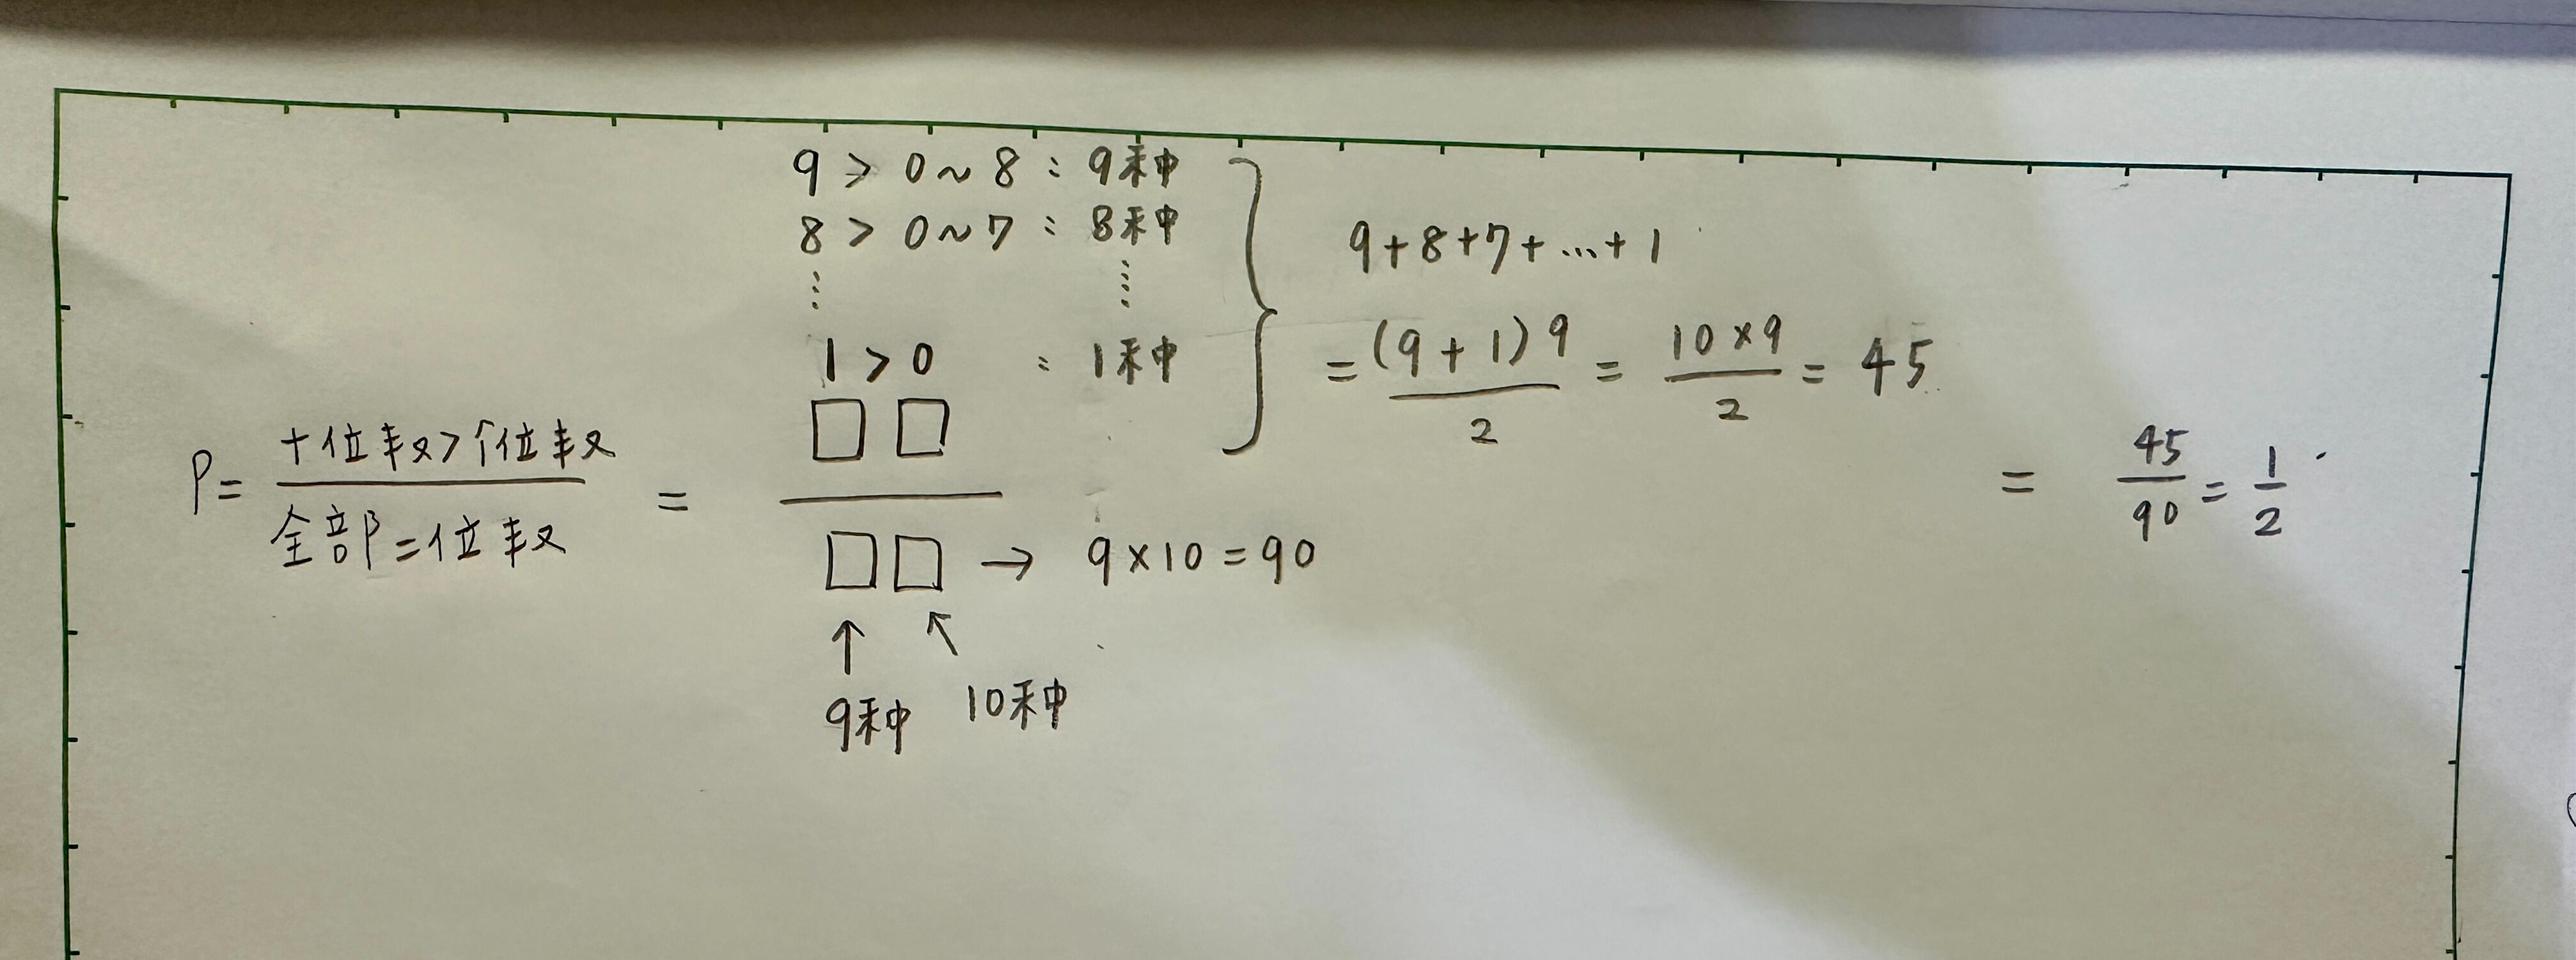 9 > 0~8 : 9种
8 > 0~7 : 8种
⋮ ⋮
1 > 0 : 1种
9+8+7+...+1
= (9+1)9/2 = 10×9/2 = 45
P = 十位数>个位数/全部二位数 = □□/□□ = 45/90 = 1/2
□□ → 9×10=90
↑ ↖
9种 10种